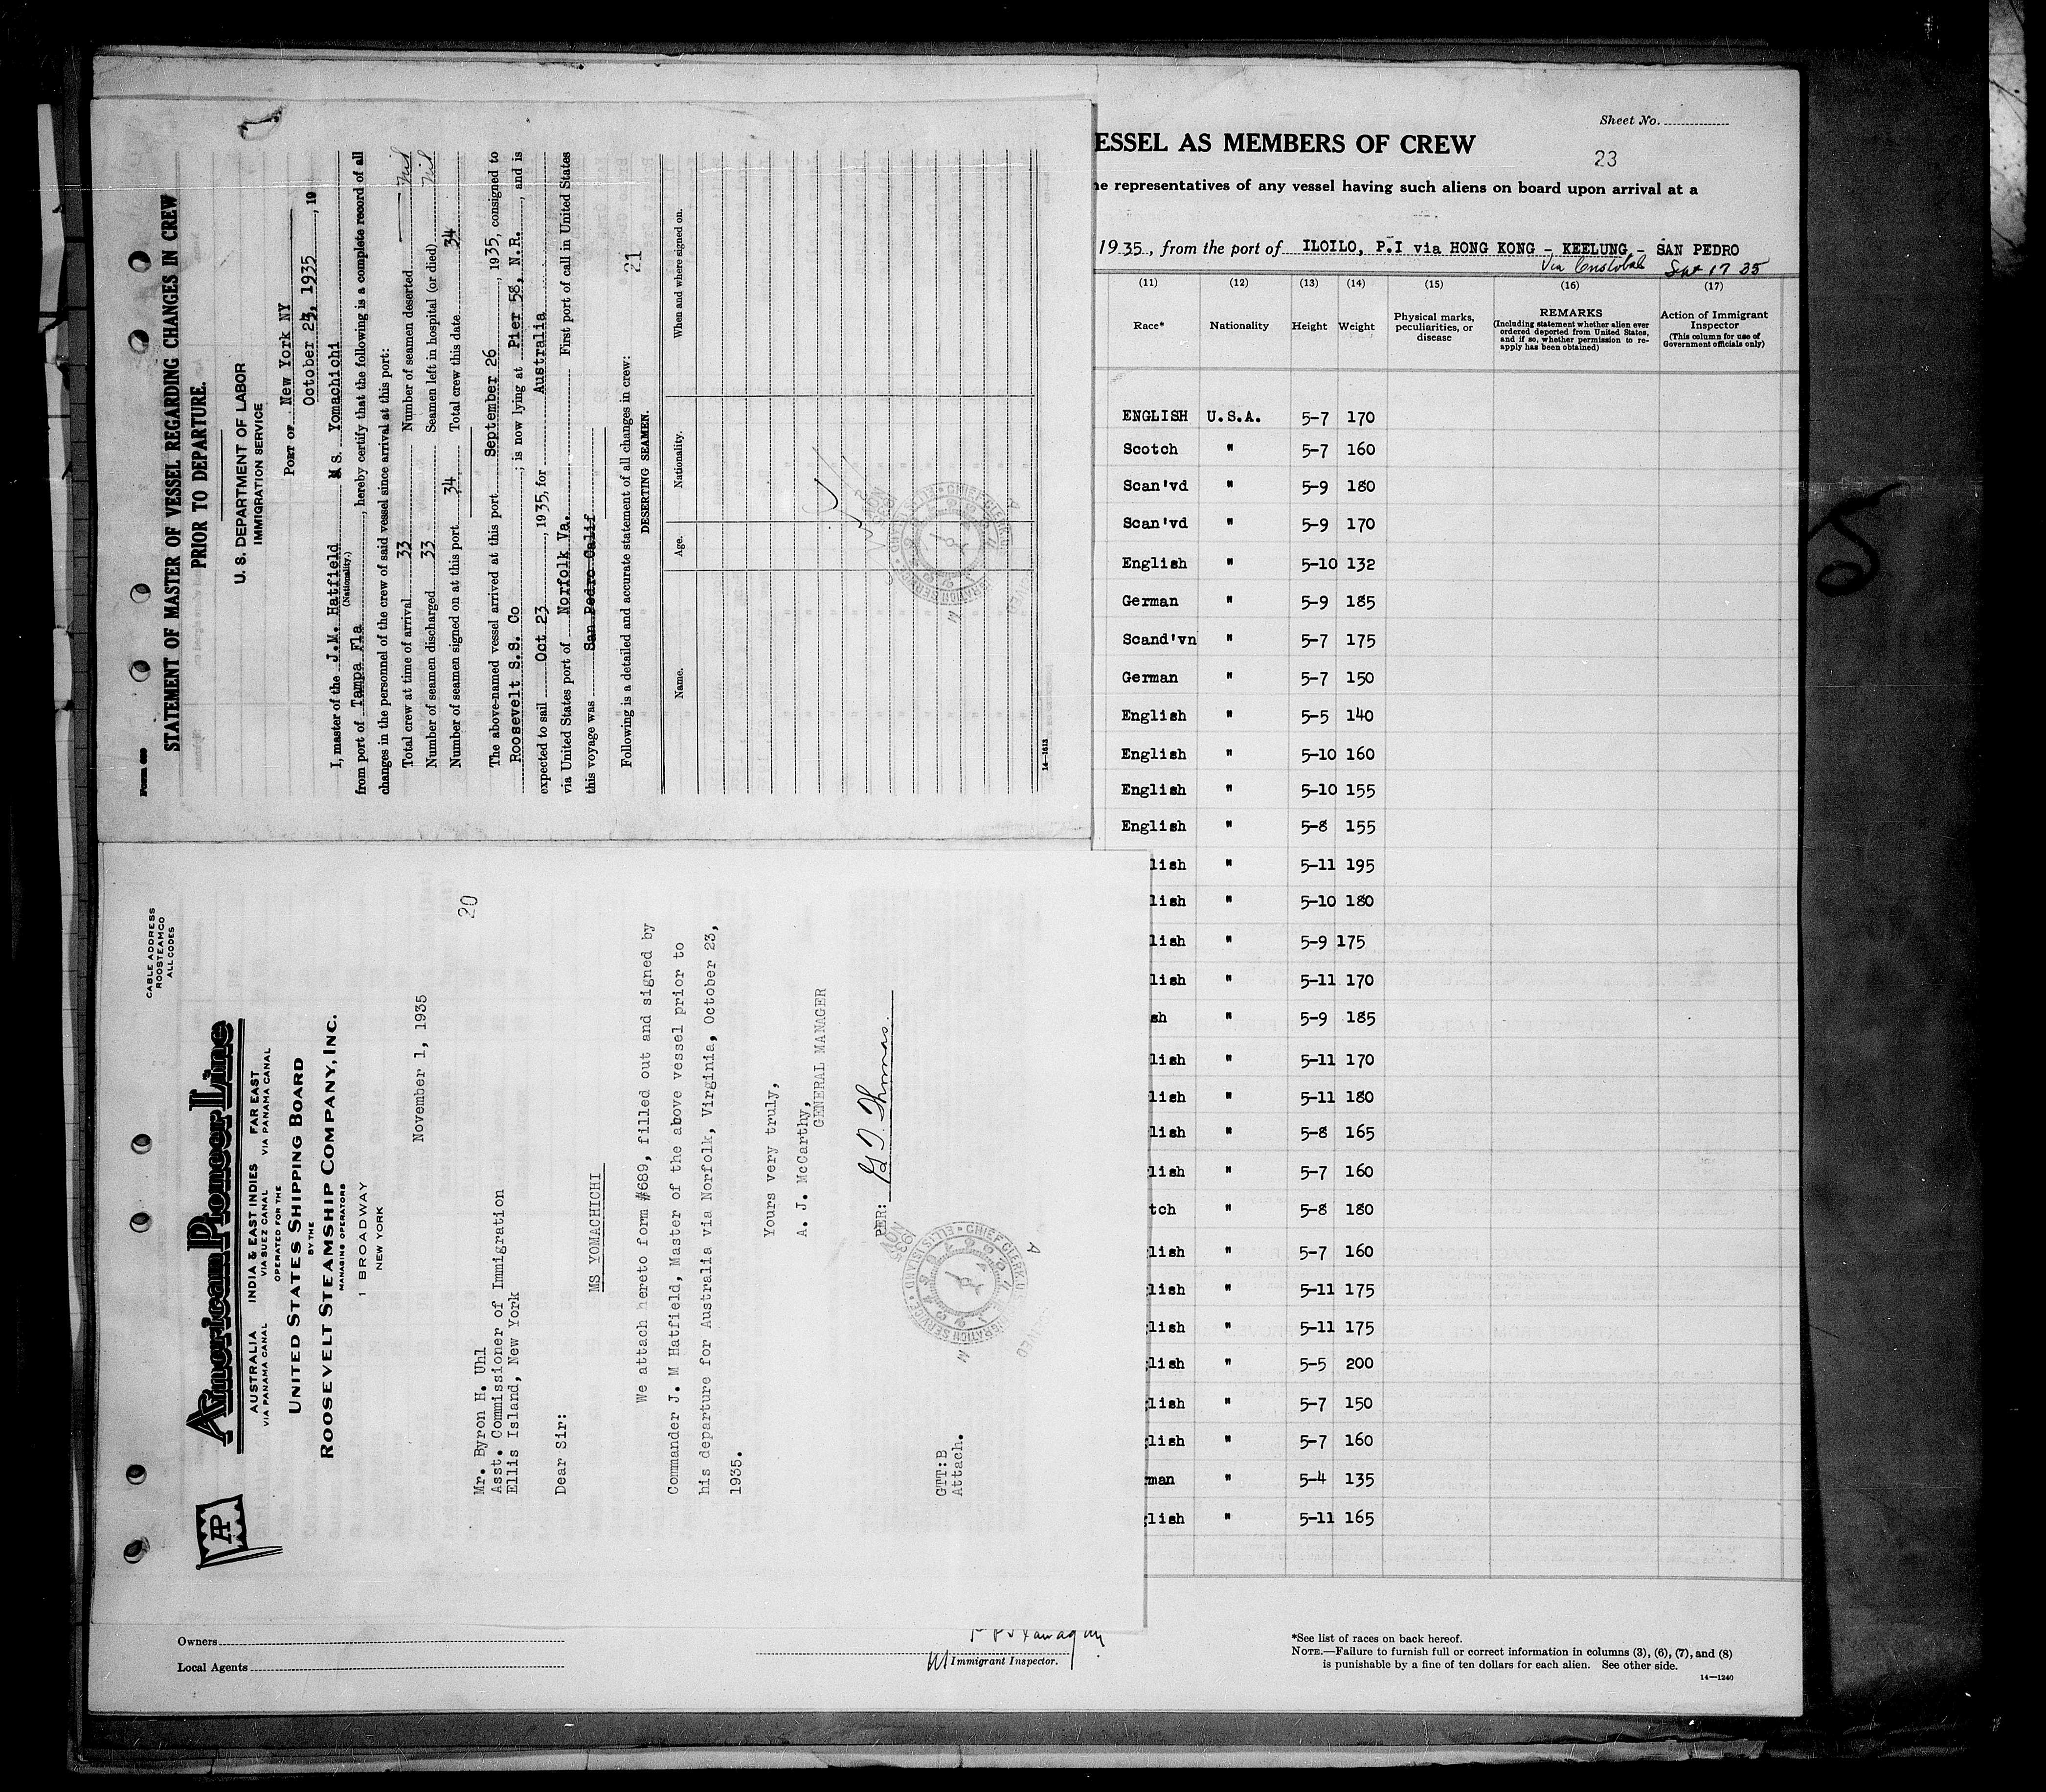 Form 689
STATEMENT OF MASTER OF VESSEL REGARDING CHANGES IN CREW
PRIOR TO DEPARTURE.
U. S. DEPARTMENT OF LABOR
IMMIGRATION SERVICE
PORT OF New York NY
October 23, 1935, 19
I, master of the J.M. Hatfield M S. Yomachichi
(Nationality.)
from port of Tampa Fla, hereby certify that the following is a complete record of all
changes in the personnel of the crew of said vessel since arrival at this port:
Total crew at time of arrival 33 Number of seamen deserted Nil
Number of seamen discharged 33 Seamen left in hospital (or died) Nil
Number of seamen signed on at this port 34 Total crew this date 34
The above-named vessel arrived at this port September 26, 1935, consigned to
Roosevelt S.S. Co; is now lying at Pier 58, N.R., and is
expected to sail Oct 23, 1935, for Australia
via United States port of Norfolk Va. First port of call in United States
this voyage was San Pedro Calif
21
Following is a detailed and accurate statement of all changes in crew:
DESERTING SEAMEN.
Name. Age. Nationality. When and where signed on.
14—1613
CABLE ADDRESS
ROOSTEAMCO
ALL CODES
AP
American Pioneer Line
AUSTRALIA INDIA & EAST INDIES FAR EAST
VIA PANAMA CANAL VIA SUEZ CANAL VIA PANAMA CANAL
OPERATED FOR THE
UNITED STATES SHIPPING BOARD
BY THE
ROOSEVELT STEAMSHIP COMPANY, INC.
MANAGING OPERATORS
1 BROADWAY
NEW YORK
November 1, 1935
20
Mr. Byron H. Uhl
Asst. Commissioner of Immigration
Ellis Island, New York
Dear Sir:
MS YOMACHICHI
We attach hereto form #689, filled out and signed by
Commander J. M Hatfield, Master of the above vessel prior to
his departure for Australia via Norfolk, Virginia, October 23,
1935.
Yours very truly,
A. J. McCarthy,
GENERAL MANAGER
PER: G T Thomas
GTT:B
Attach.
Sheet No.
ESSEL AS MEMBERS OF CREW
23
he representatives of any vessel having such aliens on board upon arrival at a
1935, from the port of ILOILO, P.I via HONG KONG - KEELUNG - SAN PEDRO
Via Cristobal Sept 17 35
(11) (12) (13) (14) (15) (16) (17)
Race* Nationality Height Weight Physical marks, peculiarities, or disease REMARKS (Including statement whether alien ever ordered deported from United States, and if so, whether permission to reapply has been obtained) Action of Immigrant Inspector (This column for use of Government officials only)
ENGLISH U.S.A. 5-7 170
Scotch " 5-7 160
Scan'vd " 5-9 180
Scan'vd " 5-9 170
English " 5-10 132
German " 5-9 185
Scand'vn " 5-7 175
German " 5-7 150
English " 5-5 140
English " 5-10 160
English " 5-10 155
English " 5-8 155
lish " 5-11 195
lish " 5-10 180
lish " 5-9 175
lish " 5-11 170
sh " 5-9 185
lish " 5-11 170
lish " 5-11 180
lish " 5-8 165
lish " 5-7 160
tch " 5-8 180
lish " 5-7 160
glish " 5-11 175
glish " 5-11 175
glish " 5-5 200
glish " 5-7 150
glish " 5-7 160
rman " 5-4 135
glish " 5-11 165
Owners
Local Agents
Immigrant Inspector.
*See list of races on back hereof.
NOTE.—Failure to furnish full or correct information in columns (3), (6), (7), and (8)
is punishable by a fine of ten dollars for each alien. See other side.
14—1240